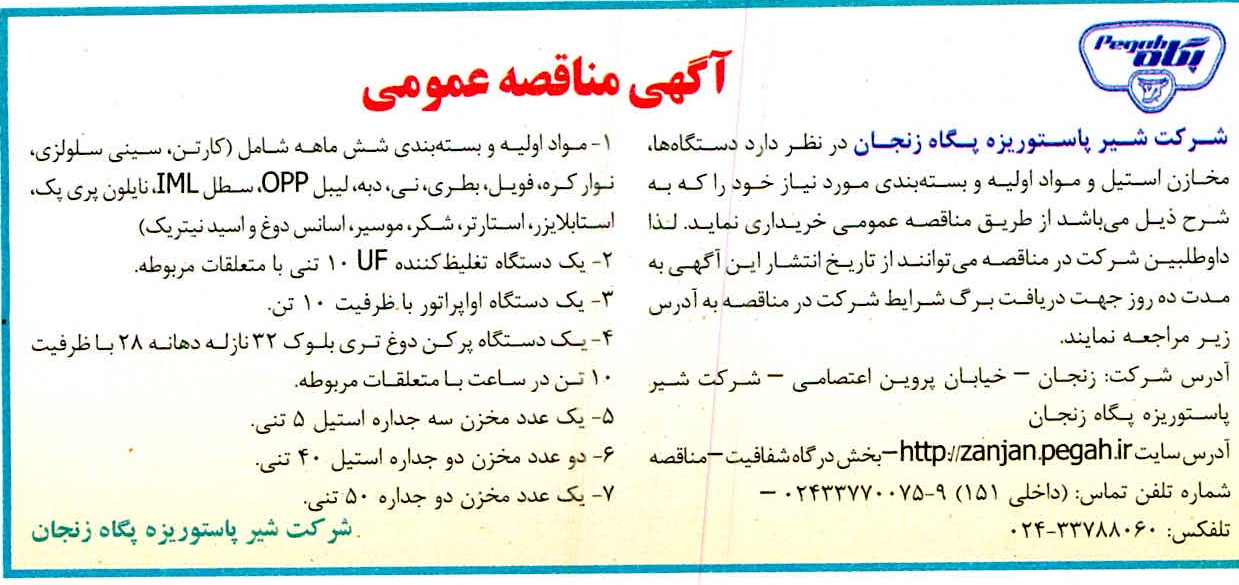 Pegah
پگاه
آگهی مناقصه عمومی
شرکت شیر پاستوریزه پگاه زنجان در نظر دارد دستگاه‌ها،
مخازن استیل و مواد اولیه و بسته‌بندی مورد نیاز خود را که به
شرح ذیل می‌باشد از طریق مناقصه عمومی خریداری نماید. لذا
داوطلبین شرکت در مناقصه می‌توانند از تاریخ انتشار این آگهی به
مدت ده روز جهت دریافت برگ شرایط شرکت در مناقصه به آدرس
زیر مراجعه نمایند.
آدرس شرکت: زنجان – خیابان پروین اعتصامی – شرکت شیر
پاستوریزه پگاه زنجان
آدرس سایت http://zanjan.pegah.ir–بخش درگاه شفافیت–مناقصه
شماره تلفن تماس: (داخلی ۱۵۱) ۹-۰۲۴۳۳۷۷۰۰۷۵ –
تلفکس: ۳۳۷۸۸۰۶۰-۰۲۴
۱- مواد اولیه و بسته‌بندی شش ماهه شامل (کارتن، سینی سلولزی،
نوار کره، فویل، بطری، نی، دبه، لیبل OPP، سطل IML، نایلون پری پک،
استابلایزر، استارتر، شکر، موسیر، اسانس دوغ و اسید نیتریک)
۲- یک دستگاه تغلیظ‌کننده UF ۱۰ تنی با متعلقات مربوطه.
۳- یک دستگاه اواپراتور با ظرفیت ۱۰ تن.
۴- یک دستگاه پرکن دوغ تری بلوک ۳۲ نازله دهانه ۲۸ با ظرفیت
۱۰ تن در ساعت با متعلقات مربوطه.
۵- یک عدد مخزن سه جداره استیل ۵ تنی.
۶- دو عدد مخزن دو جداره استیل ۴۰ تنی.
۷- یک عدد مخزن دو جداره ۵۰ تنی.
شرکت شیر پاستوریزه پگاه زنجان